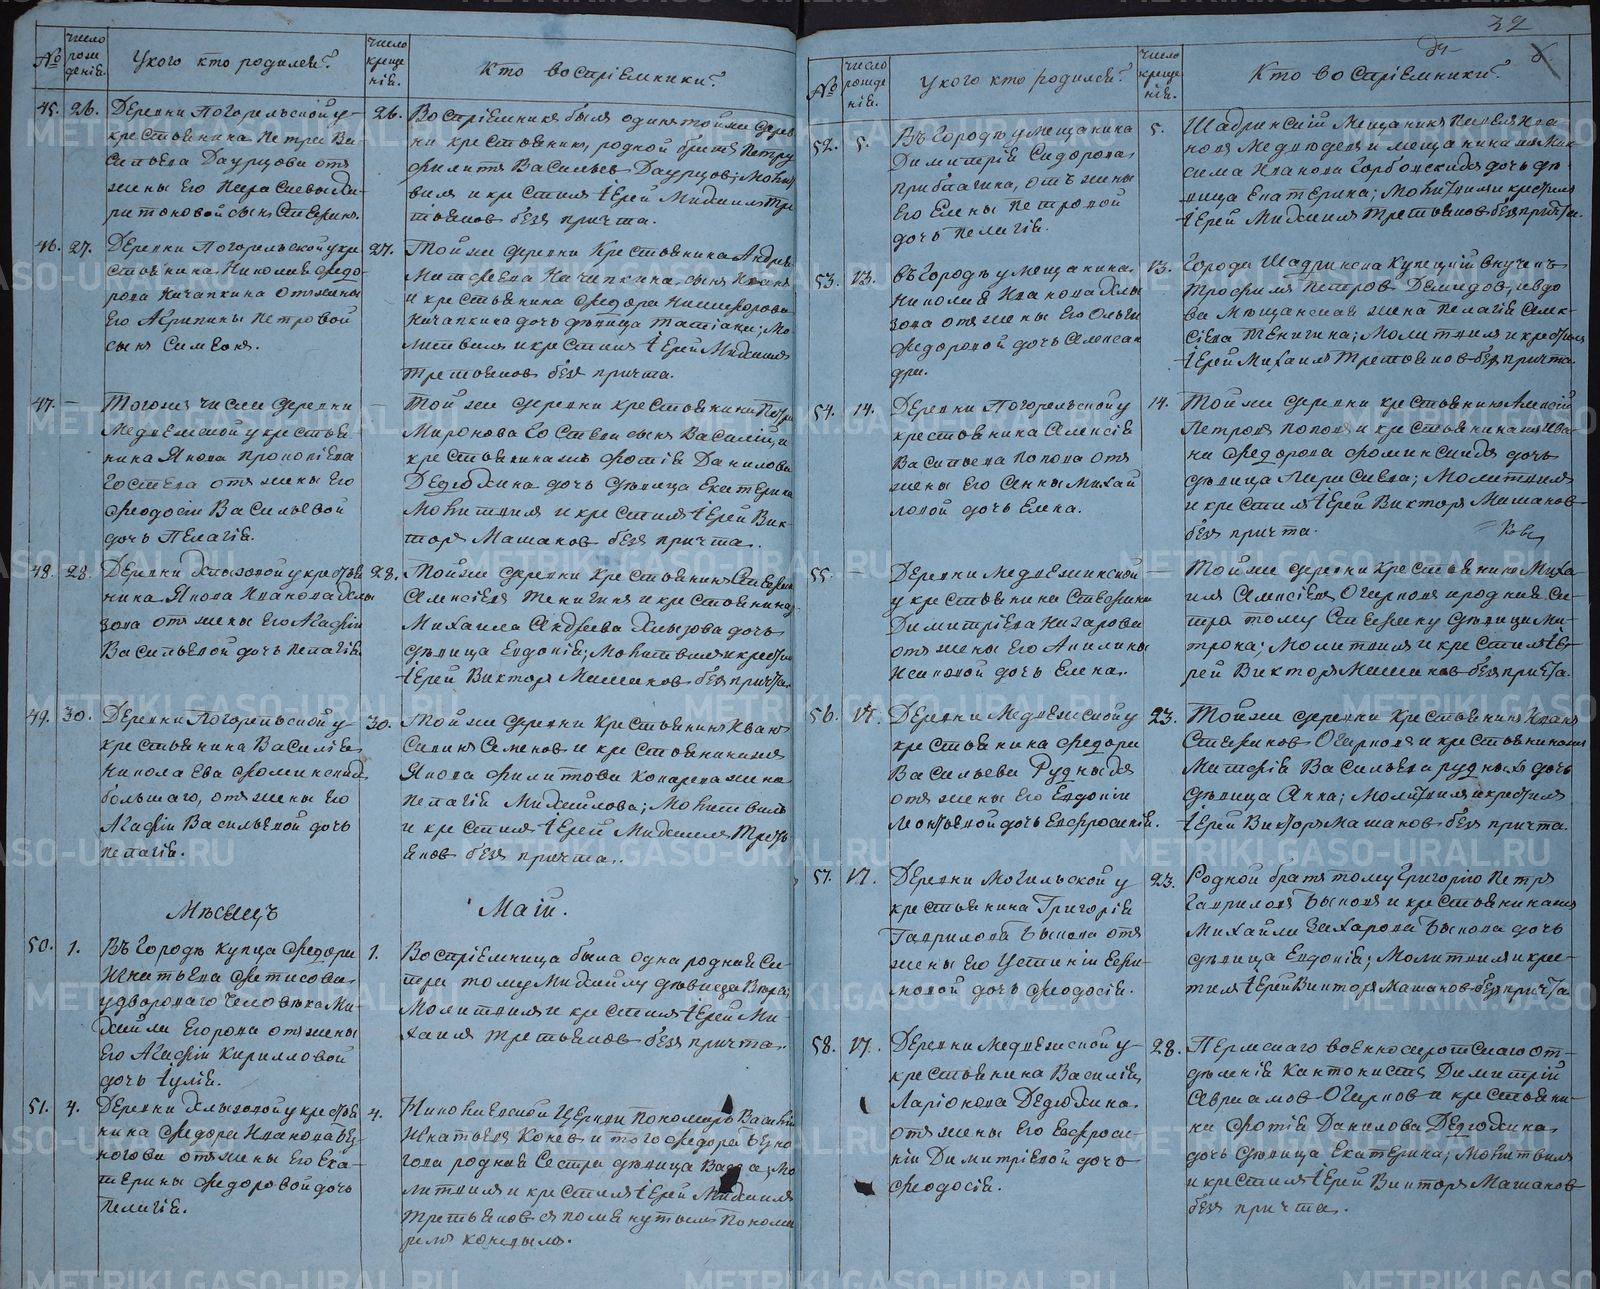 №
число рождения.
У кого кто родился?
число крещения.
Кто восприемники?
45.
26.
Деревни Погорельской у
крестьянина Петра Ва-
сильева Даурцова отъ
жены его Парасковьи Ха-
ритоновой сынъ Стефанъ.
26.
Восприемникъ былъ одинъ той же дерев
ни крестьянинъ, родной братъ Петру
Филиппъ Васильевъ Даурцовъ; Молит
вилъ и крестилъ Іерей Михаилъ Тре
тьяковъ безъ причта.
46.
27.
Деревни Погорельской у кре
стьянина Николая Федо-
рова Качапкина отъ жены
его Агрипины Петровой
сынъ Симеонъ.
27.
Той же деревни Крестьянина Андрея
Матфеева Качапкина сынъ Иванъ
и крестьянина Федора Никифорова
Качапкина дочь девица Татіана; Мо
литвилъ и крестилъ Іерей Михаилъ
Третьяковъ безъ причта.
47.
–
Того же числа деревни
Медвежской у крестья
нина Якова Прокопіева
Гостева отъ жены его
Феодосіи Васильевой
дочь Пелагія.
–
Той же деревни крестьянина Петра
Миронова Гостева сынъ Василій, и
крестьянина Фотія Данилова
Дедюхина дочь девица Екатерина
Молитвилъ и крестилъ Іерей Вик-
торъ Машановъ безъ причта.
48.
28.
Деревни Хлызовой у крестья
нина Якова Иванова Хлы
зова отъ жены его Агафіи
Васильевой дочь Пелагія.
28.
Той же деревни Крестьянинъ Стефанъ
Алексіевъ Тенигинъ и крестьянина
Михаила Андреева Хлызова дочь
девица Евдокія; Молитвилъ и крестилъ
Іерей Викторъ Машановъ безъ причта.
49.
30.
Деревни Погорельской у
крестьянина Василія
Николаева Фоминскихъ
большаго, отъ жены его
Агафіи Васильевой дочь
Пелагія.
30.
Той же деревни Крестьянинъ Иванъ
Семеновъ и крестьянина
Якова Филиппова жена
Пелагія Михайлова; Молитвилъ
и крестилъ Іерей Михаилъ Треть-
яковъ безъ причта.
Месяцъ Маій.
50.
1.
Въ Городе купца Федора
Игнатьева Фетисова
у двороваго человека Ми-
хайла Егорова отъ жены
его Агафіи Кирилловой
дочь Іулія.
1.
Восприемница была одна родная се-
стра тому Михайлу девица Вера;
Молитвилъ и крестилъ Іерей Ми-
хаилъ Третьяковъ безъ причта.
51.
4.
Деревни Хлызовой у крестья
нина Федора Иванова
отъ жены его Ека-
терины Федоровой дочь
Пелагія.
4.
Николаевской Церкви Пономарь Василій
Игнатьевъ Коневъ и того Федора
родная сестра девица Васса; Мо
литвилъ и крестилъ Іерей Михаилъ
Третьяковъ съ помянутымъ Понома
ремъ Коневымъ.
32
№
число рождения.
У кого кто родился?
число крещения.
Кто восприемники?
52.
5.
Въ Городе у мещанина
Димитрія Сидорова
отъ жены
его Елены Петровой
дочь Пелагія.
5.
Шадринскій Мещанинъ Ива
новъ Медведевъ и мещанина Мак
сима Иванова дочь де
вица Екатерина; Молитвилъ и крестилъ
Іерей Михаилъ Третьяковъ безъ причта.
53.
13.
Въ Городе у мещанина
Николая Иванова Хлы
зова отъ жены его Ольги
Федоровой дочь Алексан
дра.
13.
Города Шадринска Купецкій внучекъ
Трофимъ Петровъ Демидовъ, и вдо
ва Мещанская жена Пелагія Алек-
сіева Тенигина; Молитвилъ и крестилъ
Іерей Михаилъ Третьяковъ безъ причта.
54.
14.
Деревни Погорельской у
крестьянина Алексія
Васильева Попова отъ
жены его Анны Михай
ловой дочь Елена.
14.
Той же деревни крестьянинъ Алексій
Петровъ Поповъ и крестьянина Ива
на Федорова Фоминскихъ дочь
девица Параскева; Молитвилъ
и крестилъ Іерей Викторъ Машановъ
безъ причта.
55.
–
Деревни Медвежинской
у крестьянина Стефана
Димитріева Кигарова
отъ жены его Акилины
Исаковой дочь Елена.
–
Той же деревни Крестьянинъ Миха-
илъ Алексіевъ Огарковъ и родная се-
стра тому Стефану девица Ма-
трона; Молитвилъ и крестилъ Іе-
рей Викторъ Машановъ безъ причта.
56.
17.
Деревни Медвежской у
крестьянина Федора
Васильева Рудныхъ
отъ жены его Евдокіи
Леонтьевой дочь Евфросинія.
23.
Той же деревни Крестьянинъ Иванъ
Стефановъ Огарковъ и крестьянина
Матфія Васильева Рудныхъ дочь
девица Анна; Молитвилъ и крестилъ
Іерей Викторъ Машановъ безъ причта.
57.
17.
Деревни Могильской у
крестьянина Григорія
Гаврилова Быкова отъ
жены его Устиніи Ефи-
мовой дочь Феодосія.
23.
Родной братъ тому Григорію Петръ
Гавриловъ Быковъ и крестьянина
Михайла Захарова Быкова дочь
девица Евдокія; Молитвилъ и кре-
стилъ Іерей Викторъ Машановъ безъ причта
58.
17.
Деревни Медвежской у
крестьянина Василія
Ларіонова Дедюхина
отъ жены его Евфроси-
ніи Димитріевой дочь
Феодосія.
28.
Пермскаго военносиротскаго от-
деленія Кантонистъ Димитрій
Авраамовъ Огарковъ и крестьяни-
на Фотія Данилова Дедюхина
дочь девица Екатерина; Молитвилъ
и крестилъ Іерей Викторъ Машановъ
безъ причта.
METRIKI.GASO-URAL.RU